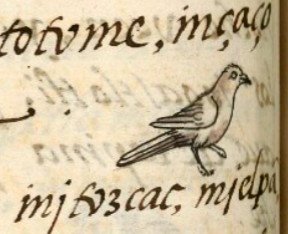 totome, inçaço
injtozcac, mjelpa